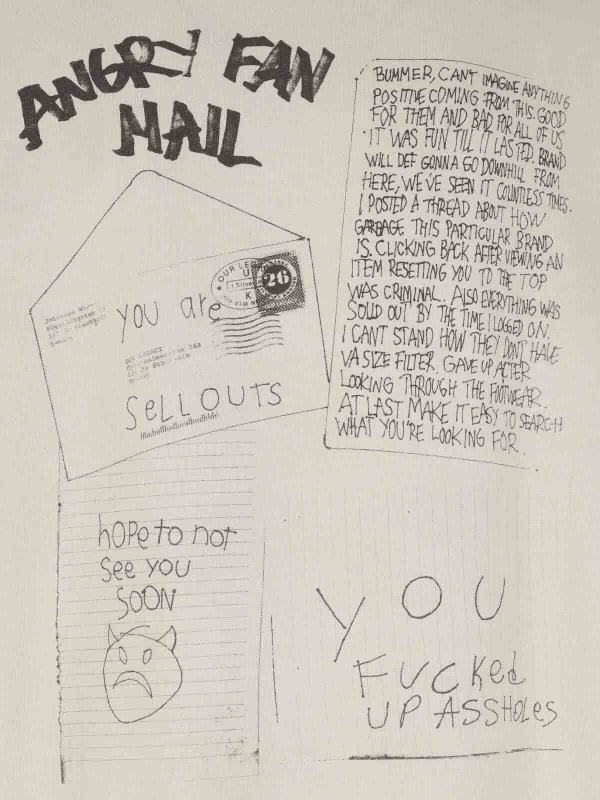 ANGRY FAN
MAIL
BUMMER, CANT IMAGINE ANYTHING
POSITIVE COMING FROM THIS. GOOD
FOR THEM AND BAD FOR ALL OF US
IT WAS FUN TILL IT LASTED. BRAND
WILL DEF GONNA GO DOWNHILL FROM
HERE, WE'VE SEEN IT COUNTLESS TIMES.
I POSTED A THREAD ABOUT HOW
GARBAGE THIS PARTICULAR BRAND
IS. CLICKING BACK AFTER VIEWING AN
ITEM RESETTING YOU TO THE TOP
WAS CRIMINAL. ALSO EVERYTHING WAS
SOLD OUT BY THE TIME I LOGGED ON.
I CANT STAND HOW THEY DON'T HAVE
VA SIZE FILTER. GAVE UP AFTER
LOOKING THROUGH THE FOOTWEAR.
AT LAST MAKE IT EASY TO SEARCH
WHAT YOU'RE LOOKING FOR.
OUR LE
U
26
K
YOU are
OUR LEGACY
SELLOUTS
hOPe to not
See YOU
SOON
YOU
FUCKed
UP ASSHOLES